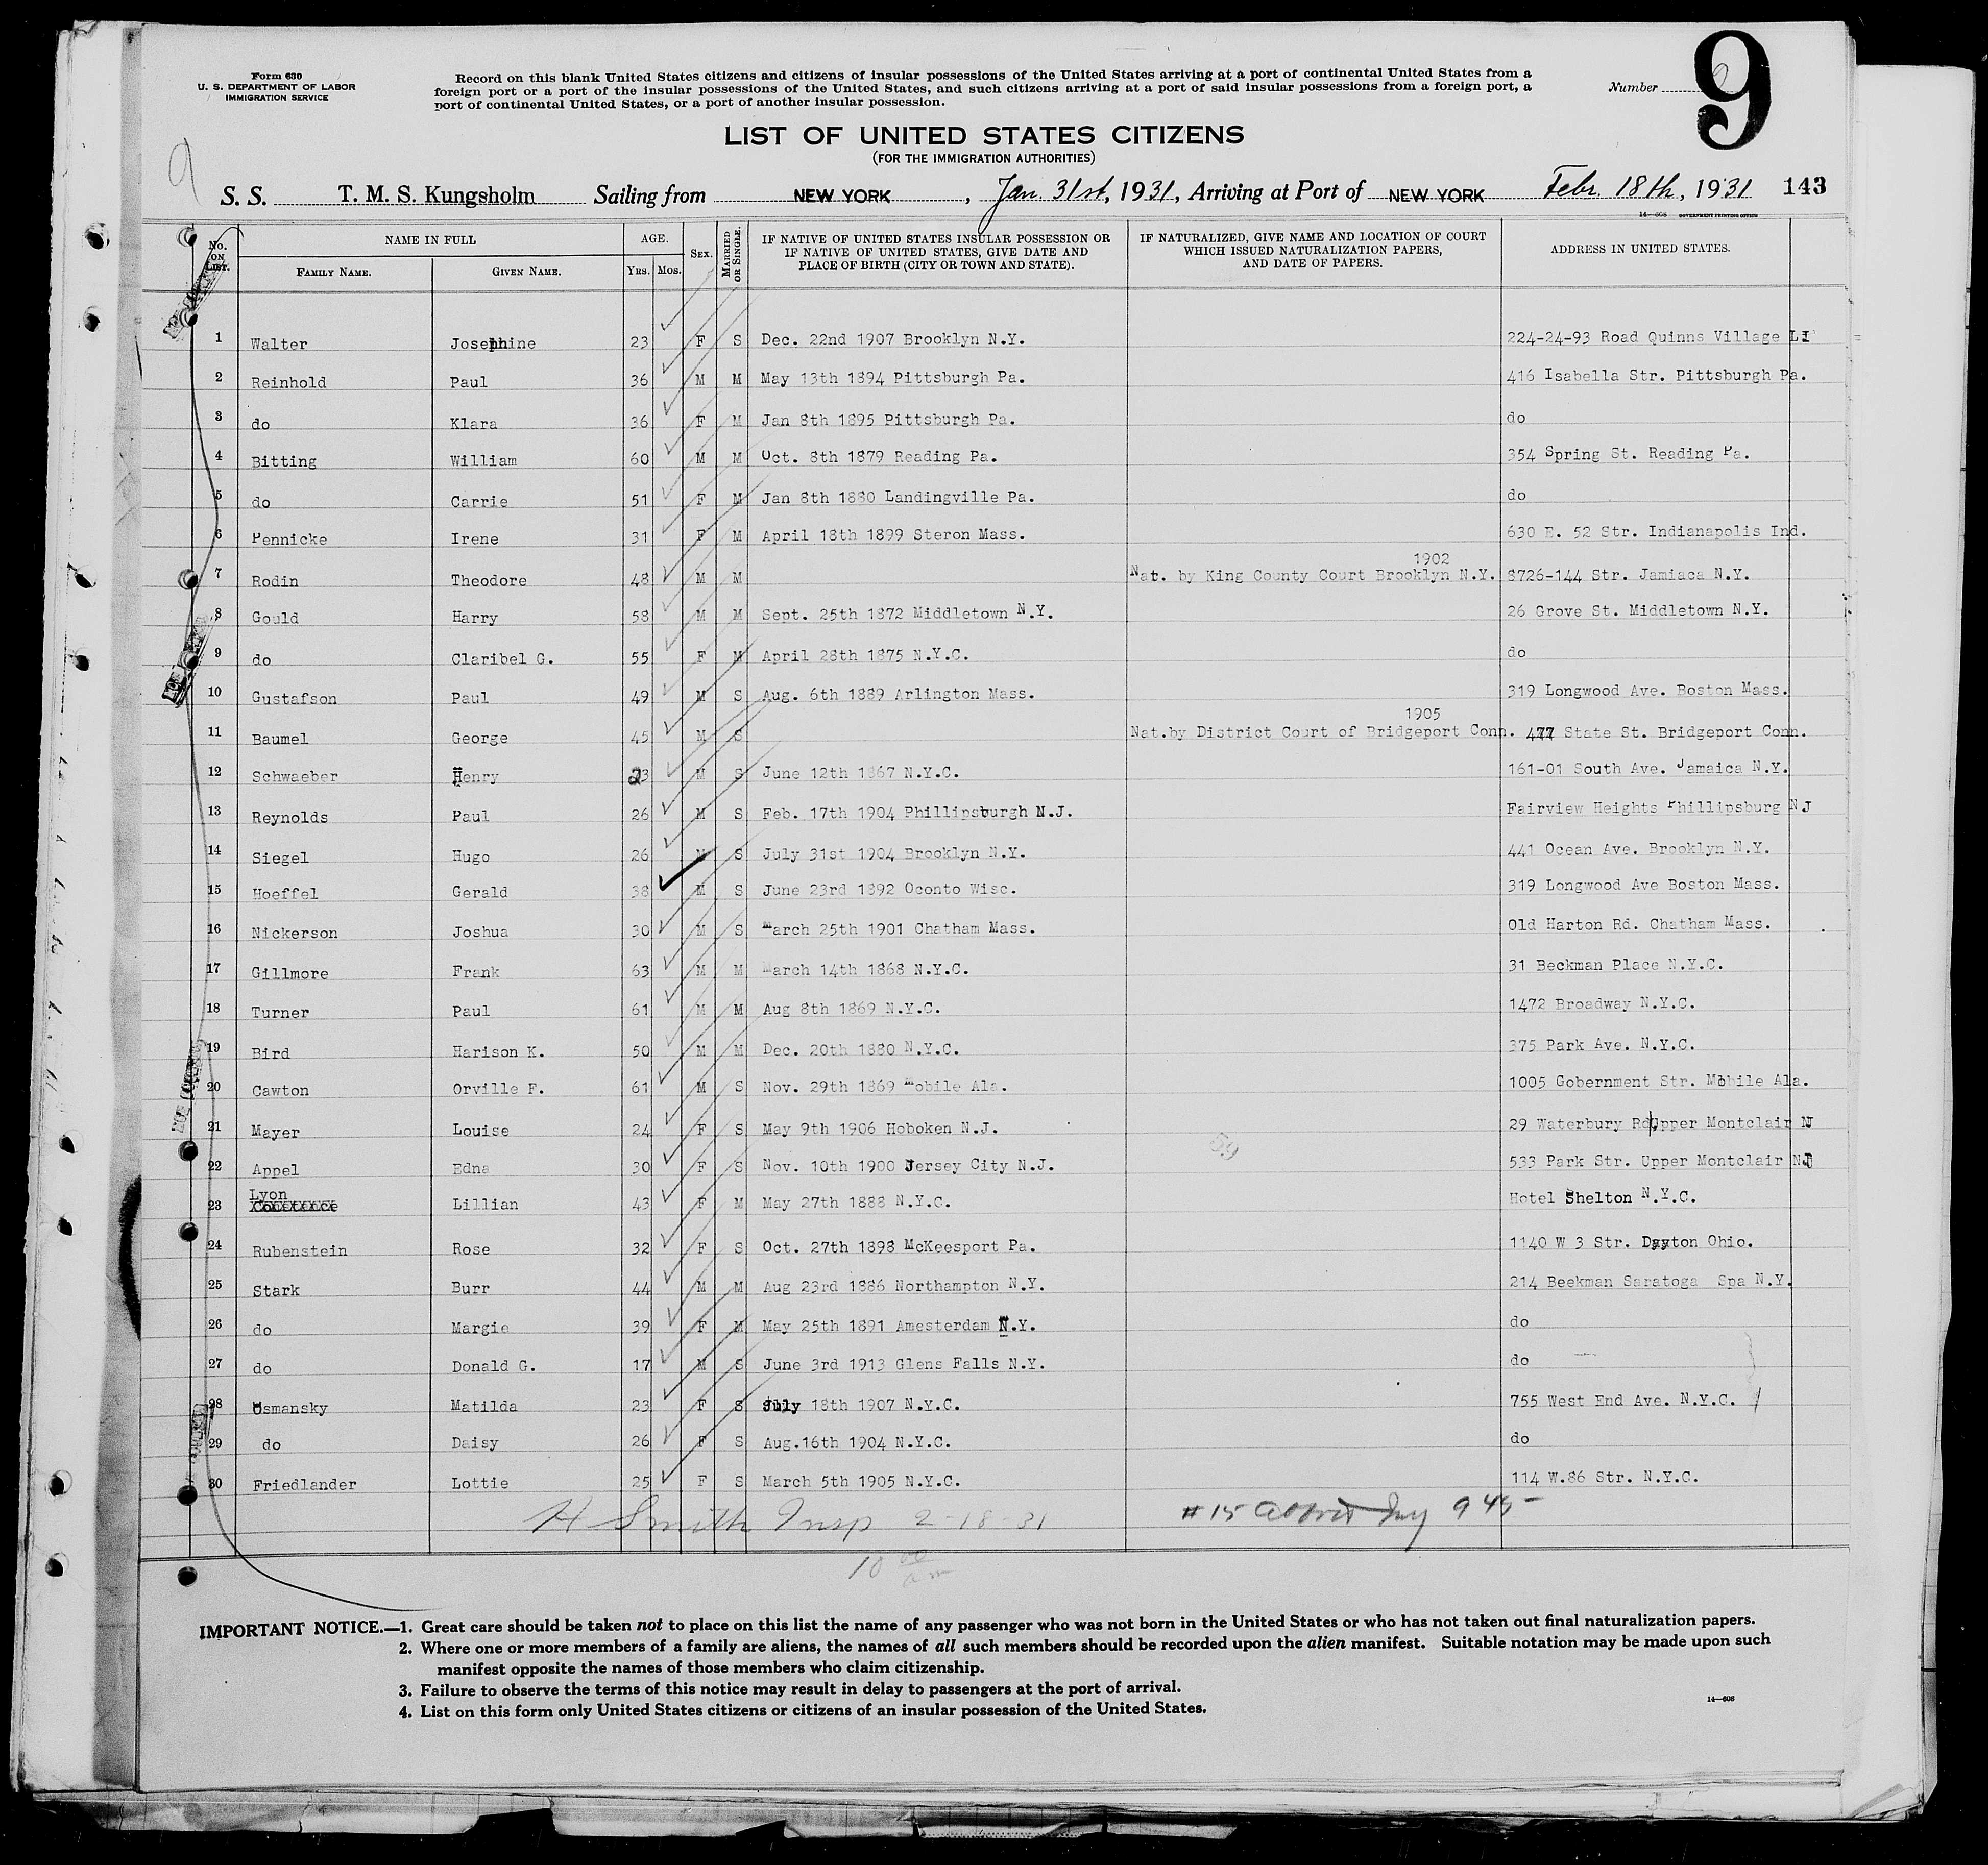 Form 630
U. S. DEPARTMENT OF LABOR
IMMIGRATION SERVICE
Record on this blank United States citizens and citizens of insular possessions of the United States arriving at a port of continental United States from a
foreign port or a port of the insular possessions of the United States, and such citizens arriving at a port of said insular possessions from a foreign port, a
port of continental United States, or a port of another insular possession.
Number 9
9
LIST OF UNITED STATES CITIZENS
(FOR THE IMMIGRATION AUTHORITIES)
9
S. S. T. M. S. Kungsholm Sailing from NEW YORK, Jan. 31st, 1931, Arriving at Port of NEW YORK Febr. 18th, 1931 143
14—608 GOVERNMENT PRINTING OFFICE
No. ON LIST. NAME IN FULL FAMILY NAME. GIVEN NAME. AGE. YRS. MOS. SEX. MARRIED OR SINGLE. IF NATIVE OF UNITED STATES INSULAR POSSESSION OR IF NATIVE OF UNITED STATES, GIVE DATE AND PLACE OF BIRTH (CITY OR TOWN AND STATE). IF NATURALIZED, GIVE NAME AND LOCATION OF COURT WHICH ISSUED NATURALIZATION PAPERS, AND DATE OF PAPERS. ADDRESS IN UNITED STATES.
1 Walter Josephine 23 F S Dec. 22nd 1907 Brooklyn N.Y. 224-24-93 Road Quinns Village LI
2 Reinhold Paul 36 M M May 13th 1894 Pittsburgh Pa. 416 Isabella Str. Pittsburgh Pa.
3 do Klara 36 F M Jan 8th 1895 Pittsburgh Pa. do
4 Bitting William 60 M M Oct. 8th 1879 Reading Pa. 354 Spring St. Reading Pa.
5 do Carrie 51 F M Jan 8th 1880 Landingville Pa. do
6 Pennicke Irene 31 F M April 18th 1899 Steron Mass. 630 E. 52 Str. Indianapolis Ind.
1902
7 Rodin Theodore 48 M M Nat. by King County Court Brooklyn N.Y. 8726-144 Str. Jamiaca N.Y.
8 Gould Harry 58 M M Sept. 25th 1872 Middletown N.Y. 26 Grove St. Middletown N.Y.
9 do Claribel G. 55 F M April 28th 1875 N.Y.C. do
10 Gustafson Paul 49 M S Aug. 6th 1889 Arlington Mass. 319 Longwood Ave. Boston Mass.
1905
11 Baumel George 45 M S Nat.by District Court of Bridgeport Conn. 477 State St. Bridgeport Conn.
12 Schwaeber Henry 23 M S June 12th 1867 N.Y.C. 161-01 South Ave. Jamaica N.Y.
13 Reynolds Paul 26 M S Feb. 17th 1904 Phillipsburgh N.J. Fairview Heights Phillipsburg NJ
14 Siegel Hugo 26 M S July 31st 1904 Brooklyn N.Y. 441 Ocean Ave. Brooklyn N.Y.
15 Hoeffel Gerald 38 M S June 23rd 1892 Oconto Wisc. 319 Longwood Ave Boston Mass.
16 Nickerson Joshua 30 M S March 25th 1901 Chatham Mass. Old Harton Rd. Chatham Mass.
17 Gillmore Frank 63 M M March 14th 1868 N.Y.C. 31 Beckman Place N.Y.C.
18 Turner Paul 61 M M Aug 8th 1869 N.Y.C. 1472 Broadway N.Y.C.
19 Bird Harison K. 50 M M Dec. 20th 1880 N.Y.C. 375 Park Ave. N.Y.C.
20 Cawton Orville F. 61 M S Nov. 29th 1869 Mobile Ala. 1005 Gobernment Str. Mobile Ala.
21 Mayer Louise 24 F S May 9th 1906 Hoboken N.J. 29 Waterbury Rd, Upper Montclair NJ
22 Appel Edna 30 F S Nov. 10th 1900 Jersey City N.J. 533 Park Str. Upper Montclair NJ
59
Lyon
23 Lillian 43 F M May 27th 1888 N.Y.C. Hotel Shelton N.Y.C.
24 Rubenstein Rose 32 F S Oct. 27th 1898 McKeesport Pa. 1140 W 3 Str. Dayton Ohio.
25 Stark Burr 44 M M Aug 23rd 1886 Northampton N.Y. 214 Beekman Saratoga Spa N.Y.
26 do Margie 39 F M May 25th 1891 Amesterdam N.Y. do
27 do Donald G. 17 M S June 3rd 1913 Glens Falls N.Y. do
28 Osmansky Matilda 23 F S July 18th 1907 N.Y.C. 755 West End Ave. N.Y.C.
29 do Daisy 26 F S Aug.16th 1904 N.Y.C. do
30 Friedlander Lottie 25 F S March 5th 1905 N.Y.C. 114 W.86 Str. N.Y.C.
H Smith Insp 2-18-31 #15 945
10 00 am
IMPORTANT NOTICE.—1. Great care should be taken not to place on this list the name of any passenger who was not born in the United States or who has not taken out final naturalization papers.
2. Where one or more members of a family are aliens, the names of all such members should be recorded upon the alien manifest. Suitable notation may be made upon such
manifest opposite the names of those members who claim citizenship.
3. Failure to observe the terms of this notice may result in delay to passengers at the port of arrival.
4. List on this form only United States citizens or citizens of an insular possession of the United States.
14—608